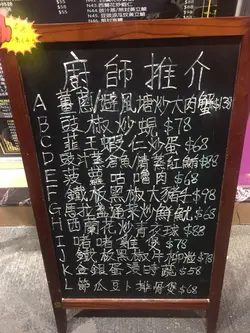 N45.
廚師推介
A 薑葱/避風塘炒大肉蟹$138
B 豉椒炒蜆$78
C 韭王蝦仁炒蛋$68
D 豉汁蒸倉魚/清蒸紅鮋$88
E 菠蘿咕嚕肉$68
F 鐵板黑椒大豬手$98
G 馬拉盞通菜炒鮮魷$68
H 西蘭花炒帶子球$88
I 啫啫雞煲$78
J 鐵板黑椒牛柳$78
K 金銀蛋浸時蔬$58
L 節瓜豆卜排骨煲$68